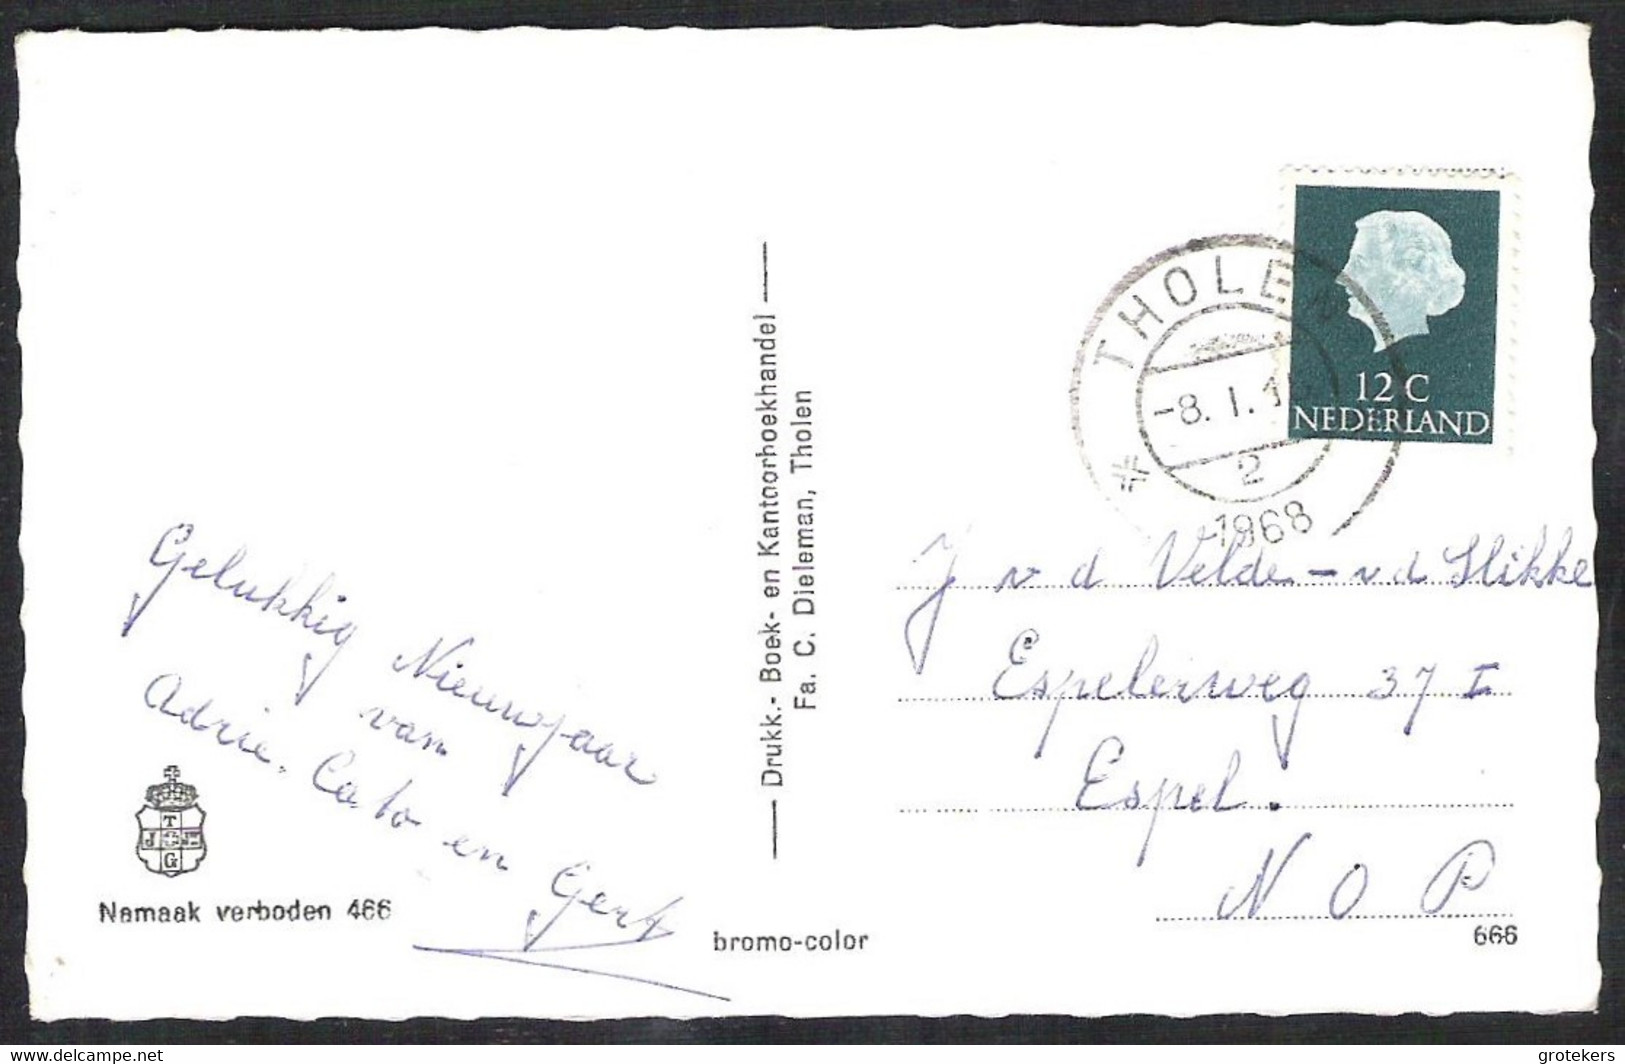 Gelukkig Nieuwjaar
van
Adrie, Cato en Gert
T
J
G
Namaak verboden 466
Drukk.- Boek- en Kantoorboekhandel
Fa. C. Dieleman, Tholen
bromo-color
THOLEN
-8. I. 1
2
-1968
12 C
NEDERLAND
J v d Velde - v d Slikke
Espelerweg 37 I
Espel.
N O P
666
www.delcampe.net
grotekers